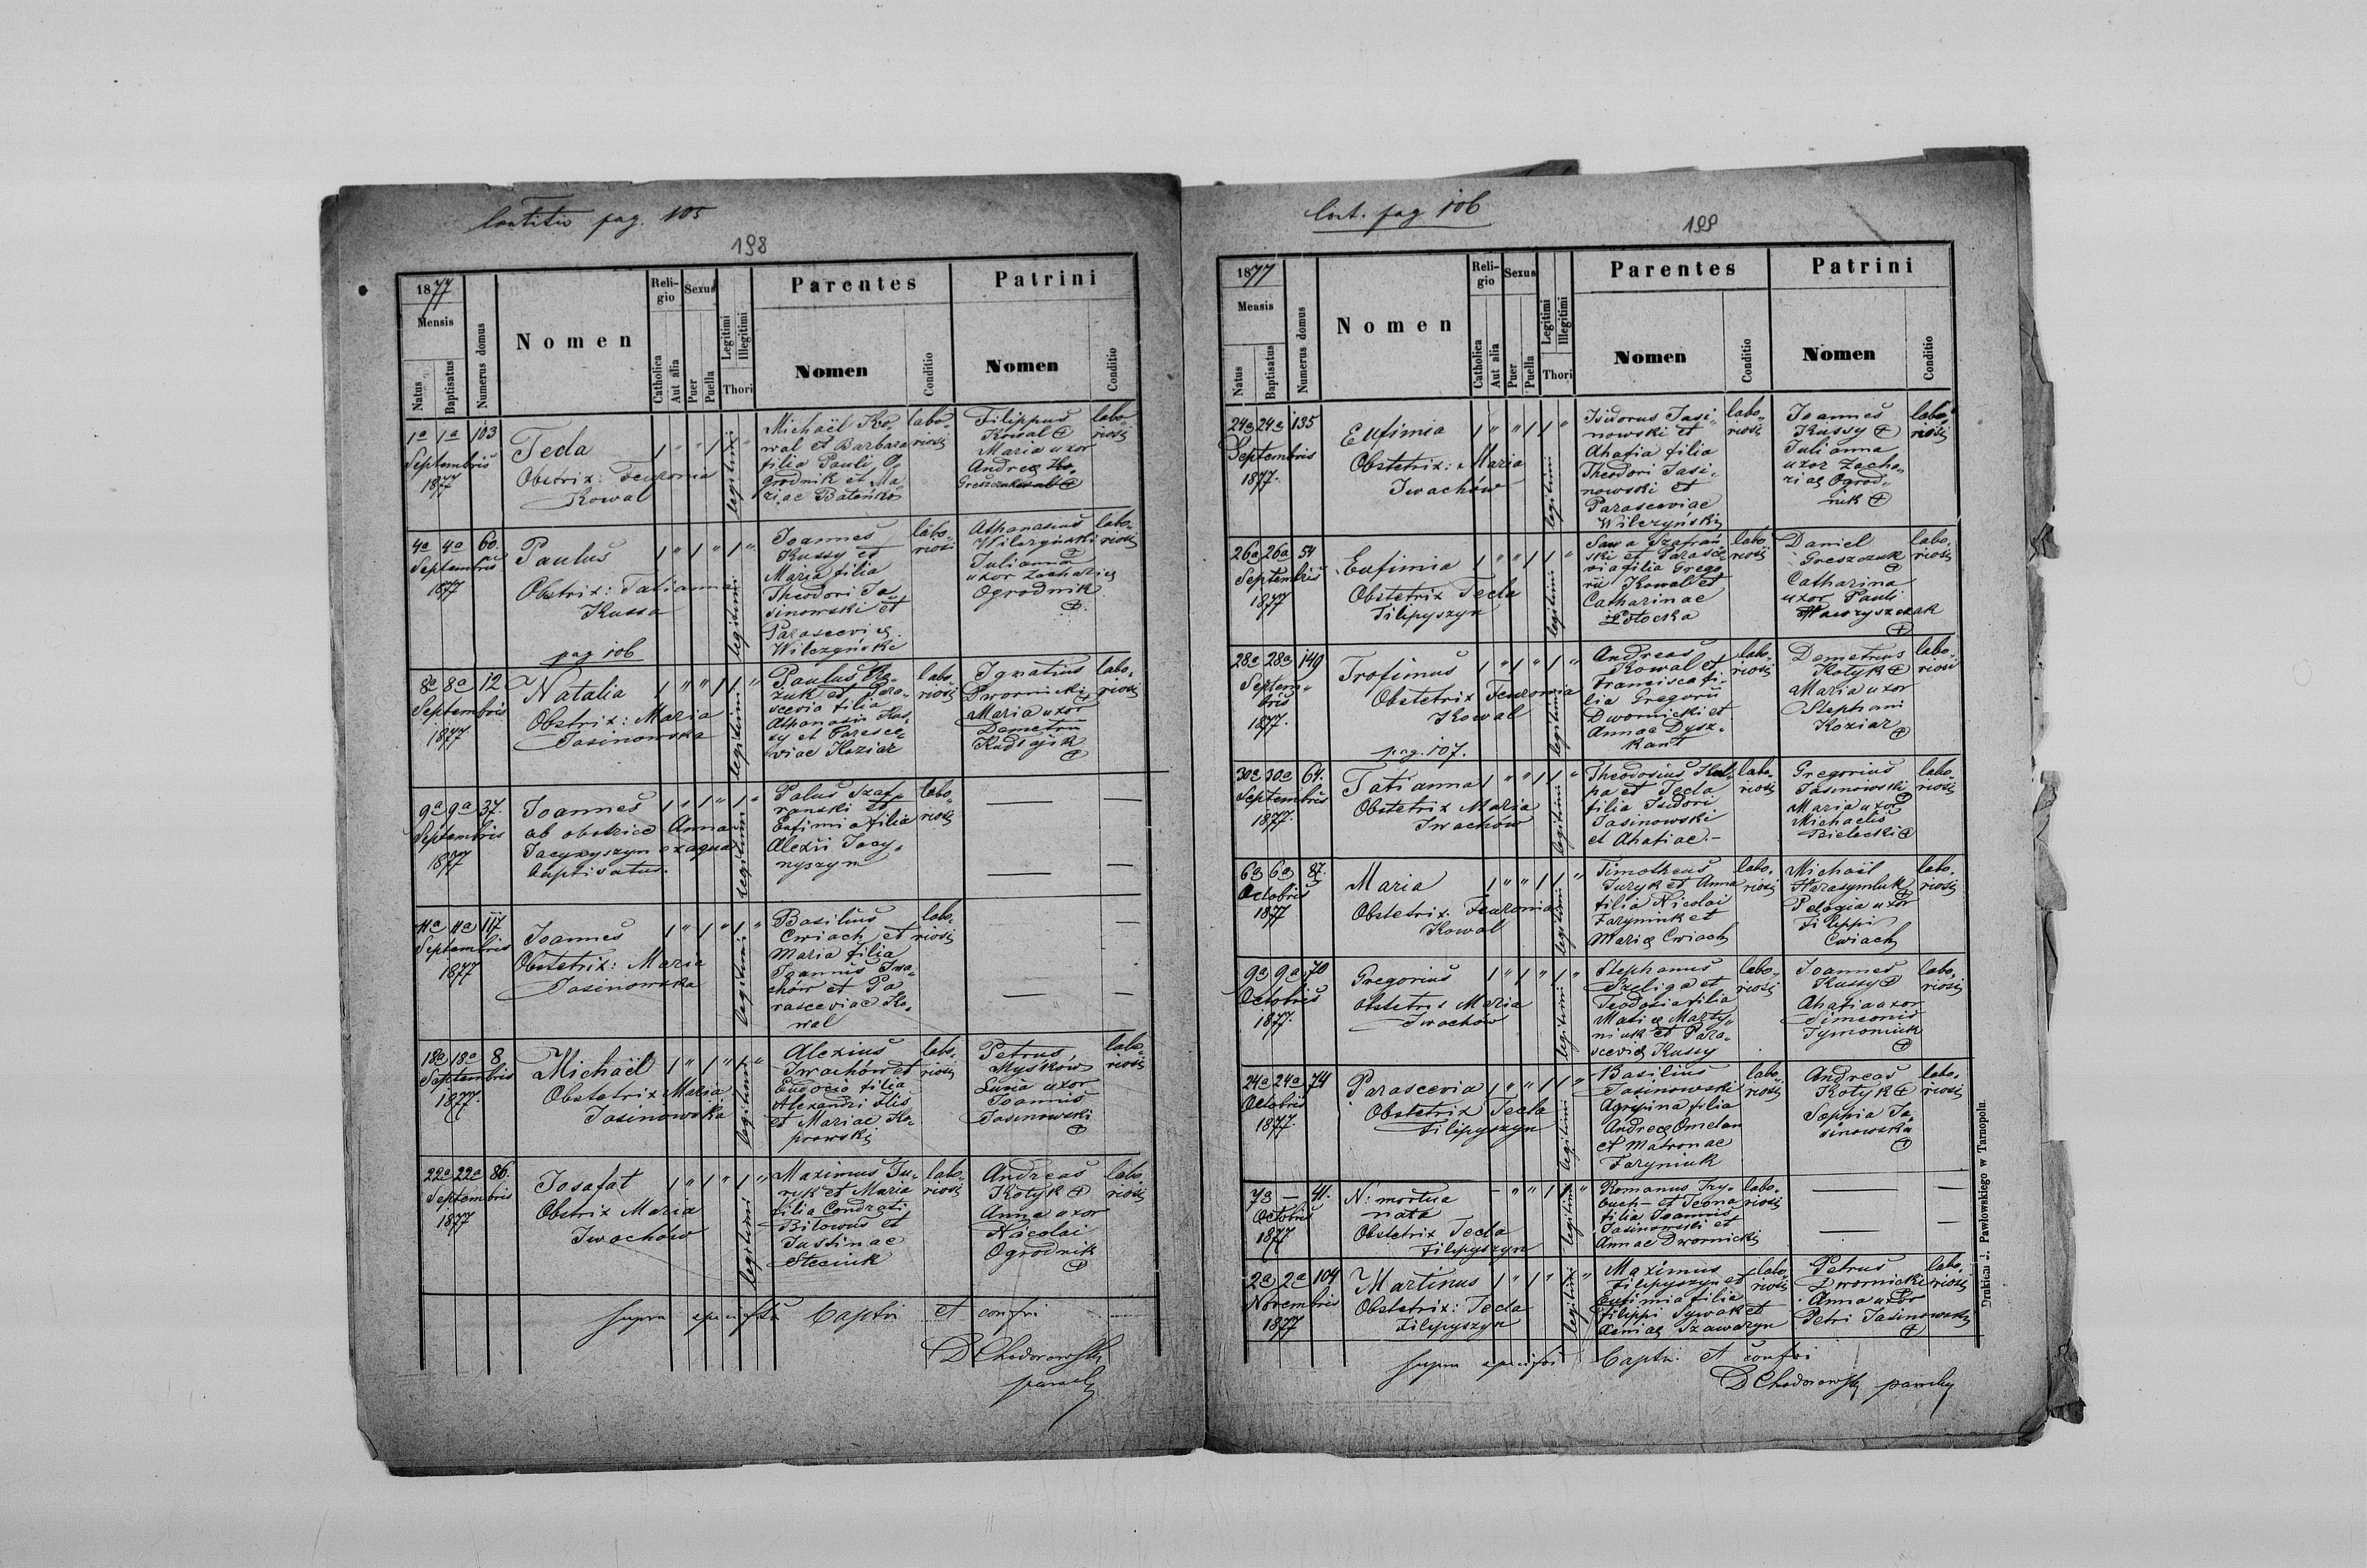 pag. 105
198
1877
Mensis
Natus
Baptisatus
Numerus domus
Nomen
Religio
Catholica
Aut alia
Sexus
Puer
Puella
Legitimi
Illegitimi
Thori
Parentes
Nomen
Conditio
Patrini
Nomen
Conditio
1a 1a 103
Septembris
1877
Tecla
Obstrix: Feuronia
Kowal
legitimi
Michaël Ko-
wal et Barbara
filia Pauli O-
grodnik et Ma-
riae
labo-
riosi
Filippus
Kowal
Maria uxor
Andreae
labo-
riosi
4a 4a 60
Septembris
1877
Paulus
Obstrix: Tatianna
Kussa
legitimi
Joannes
Kussy et
Maria filia
Theodori Ja-
sinowski et
Parasceviae
Wilczyński
labo-
riosi
Athanasius
Wilczyński
Julianna
uxor Zachariae
Ogrodnik
labo-
riosi
pag 106
8a 8a 12
Septembris
1877
Natalia
Obstrix: Maria
Jasinowska
legitimi
Paulus
et Para-
scevia filia
Athanasii Kus-
sy et Parasce-
viae Koziar
labo-
riosi
Ignatius
Dwornicki
Maria uxor
Demetrii
labo-
riosi
9a 9a 37
Septembris
1877
Joannes
ab obstrice Anna
Jacynyszyn ex aqua
baptisatus.
legitimi
Palus Szaf-
ranski et
Eufimia filia
Alexii Jacy-
nyszyn
labo-
riosi
11a 11a 117
Septembris
1877
Joannes
Obstetrix: Maria
Jasinowska
legitimi
Basilius
Cwiach et
Maria filia
Joannis Iwa-
chów et Pa-
rasceviae Ko-
wal
labo-
riosi
18a 18a 8
Septembris
1877
Michaël
Obstetrix Maria
Jasinowska
legitimi
Alexius
Iwachów et
Eudocia filia
Alexandri
et Mariae Ko-
prowski
labo-
riosi
Petrus
Myśków
uxor
Joannis
Jasinowski
labo-
riosi
22a 22a 86
Septembris
1877
Josafat
Obstrix Maria
Iwachów
legitimi
Maximus Ju-
ryk et Maria
filia Condrati
Bilowus et
Justinae
Steciuk
labo-
riosi
Andreas
Kotyk
Anna uxor
Nicolai
Ogrodnik
labo-
riosi
supra
et
D Chodorowski
Cont. pag 106
199
1877
Mensis
Natus
Baptisatus
Numerus domus
Nomen
Religio
Catholica
Aut alia
Sexus
Puer
Puella
Legitimi
Illegitimi
Thori
Parentes
Nomen
Conditio
Patrini
Nomen
Conditio
24a 24a 135
Septembris
1877.
Eufimia
Obstetrix: Maria
Iwachów
legitimi
Isidorus Jasi-
nowski et
Ahafia filia
Theodori Jasi-
nowski et
Parasceviae
Wilczyński
labo-
riosi
Joannes
Kussy
Julianna
uxor Zacha-
riae Ogrod-
nik
labo-
riosi
26a 26a 54
Septembris
1877
Eufimia
Obstetrix Tecla
Filipyszyn
legitimi
Sawa Szafrań-
ski et Parasce-
via filia Grego-
rii Kowal et
Catharinae
Potocka
labo-
riosi
Daniel
Greszczuk
Catharina
uxor Pauli
labo-
riosi
28a 28a 149
Septem-
bris
1877.
Trofimus
Obstetrix Feuronia
Kowal
legitimi
Andreas
Kowal et
Francisca fi-
lia Gregorii
Dwornicki et
Annae Dysz-
kant
labo-
riosi
Demetrius
Kotyk
Maria uxor
Stephani
Koziar
labo-
riosi
pag. 107.
30a 30a 64.
Septembris
1877.
Tatianna
Obstetrix Maria
Iwachów
legitimi
Theodosius
et Tecla
filia Isidori
Jasinowski
et Ahafiae.-
labo-
riosi
Gregorius
Jasinowski
Maria uxor
Michaelis
Bielecki
labo-
riosi
6a 6a 87.
Octobris
1877
Maria
Obstetrix Feuronia
Kowal
legitimi
Timotheus
Juryk et Anna
filia Nicolai
Faryniuk et
Mariae Cwiach
labo-
riosi
Michaël
Harasymluk
Pelagia uxor
Filippi
Cwiach
labo-
riosi
9a 9a 70
Octobris
1877.
Gregorius
obstetrix Maria
Iwachów
legitimi
Stephanus
Szeliga et
Teodosia filia
Marty-
niuk et Para-
sceviae Kussy
labo-
riosi
Joannes
Kussy
Ahafia uxor
Simeonis
Tymoniuk
labo-
riosi
24a 24a 74
Octobris
1877.
Parascevia
Obstetrix Tecla
Filipyszyn
legitimi
Basilius
Jasinowski
Agripina filia
Andreae Omelan
et Matronae
Faryniuk
labo-
riosi
Andreas
Kotyk
Sophia Ja-
sinowska
labo-
riosi
7a — 41.
Octobris
1877
N: mortua
nata
Obstetrix Tecla
Filipyszyn
legitimi
Romanus Try-
buch et
filia Joannis
Jasinowski et
Annae Dwornicki
labo-
riosi
2a 2a 104
Novembris
1877
Martinus
Obstetrix: Tecla
Filipyszyn
legitimi
Maximus
Filipyszyn et
Eufimia filia
Filippi Sywak et
Xeniae Szawaryn
labo-
riosi
Petrus
Dwornicki
Anna uxor
Petri Jasinowski
labo-
riosi
supra
et
D Chodorowski
Drukiem J. Pawłowskiego w Tarnopolu.